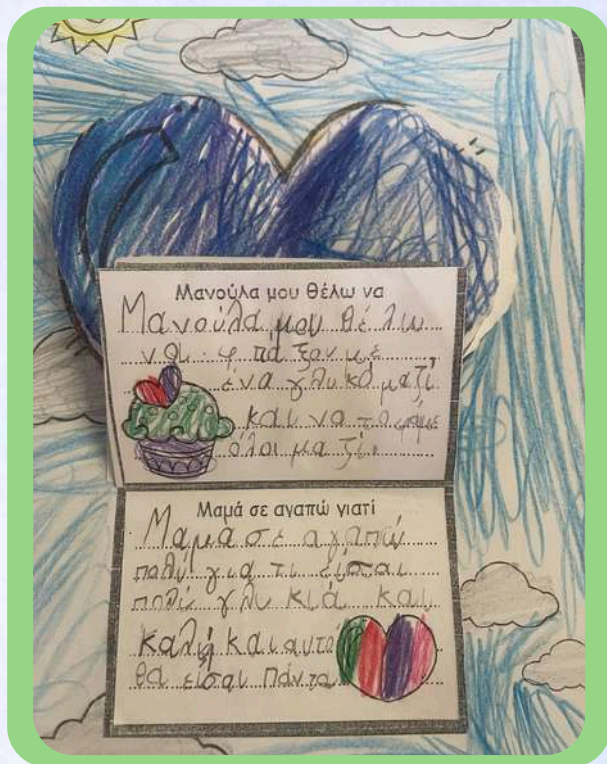 Μανούλα μου θέλω να
Μανούλα μου θέλω
να φτιάξουμε
ένα γλυκό μαζί
και να το φάμε
όλοι μαζί.
Μαμά σε αγαπώ γιατί
Μαμά σε αγαπώ
πολύ για τι είσαι
πολύ γλυκιά και
καλή και αυτό
θα είσαι πάντα